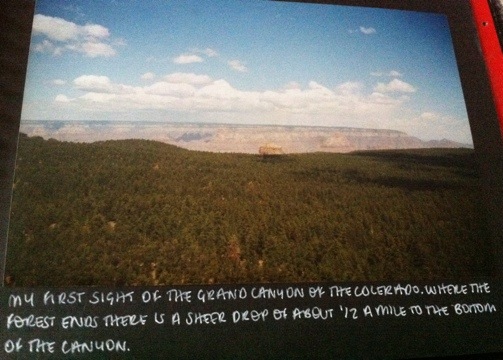 MY FIRST SIGHT OF THE GRAND CANYON OF THE COLERADO. WHERE THE
FOREST ENDS THERE IS A SHEER DROP OF ABOUT 1/2 A MILE TO THE BOTTOM
OF THE CANYON.